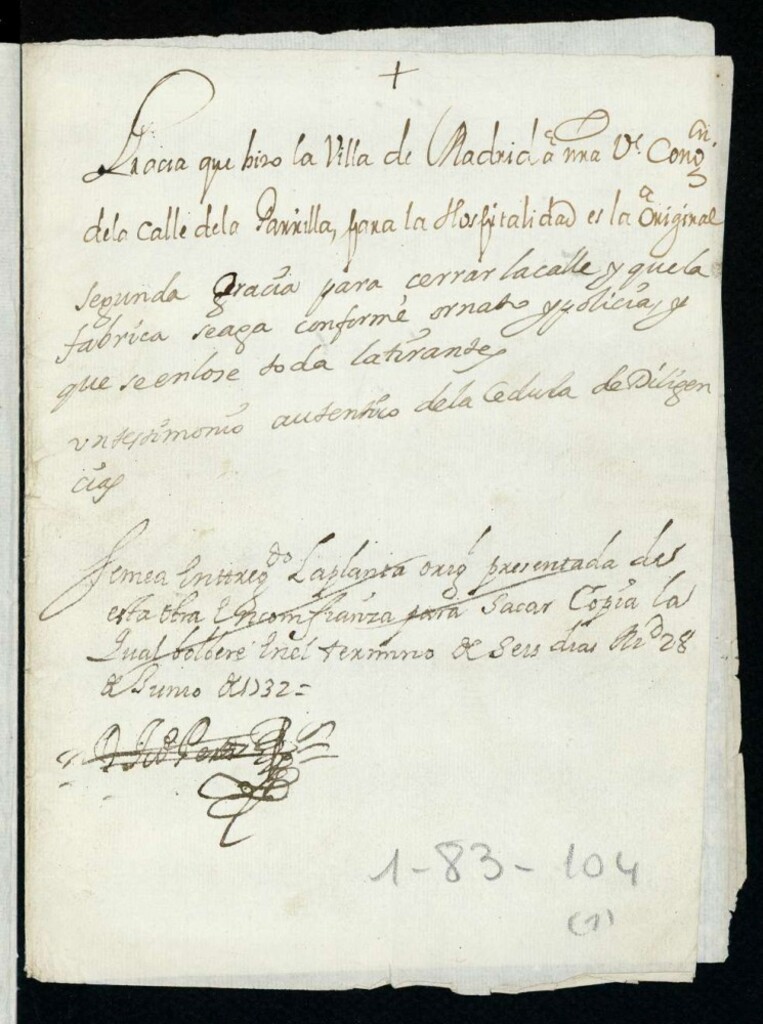 +
Gracia que hizo la Villa de Madrid â nrra Vᵉ. Congⁿ.
dela Calle dela Parrilla, para la Hospitalidad es la Original
segunda gracia para cerrar la calle y quela
fabrica seaga conforme ornato y policia, y
que se enlose toda la tirantez
un testimonio autentico dela Cedula de Diligen
cias
Semea Enttregᵈᵒ La planta orig presentada de
esta obra En comfianza para Sacar Copia la
Qual bolbere En el termino de Seis dias Mᵈ 28
de Junio de 1732=
1-83-104
(1)